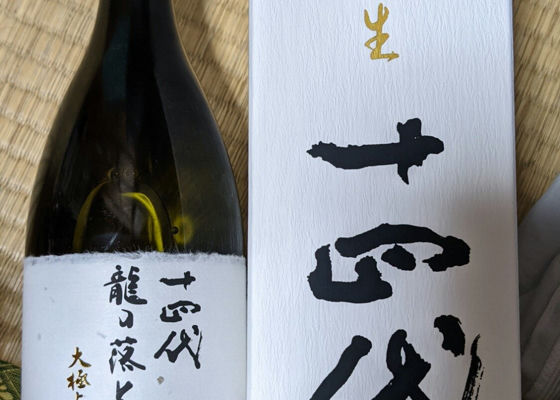 十四代
龍の落と
大極上
生
十四代